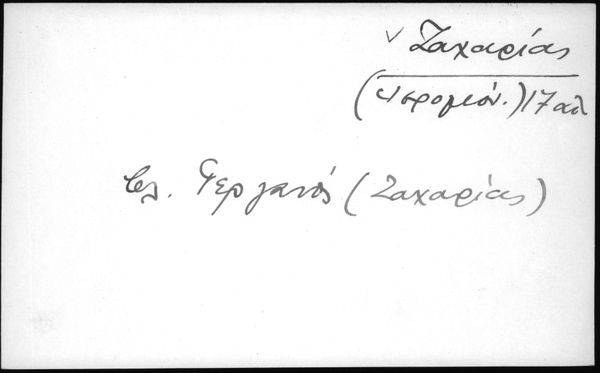 Ζαχαρίας
(ιερομόν.) 17 αι
βλ. Γεργανός (Ζαχαρίας)